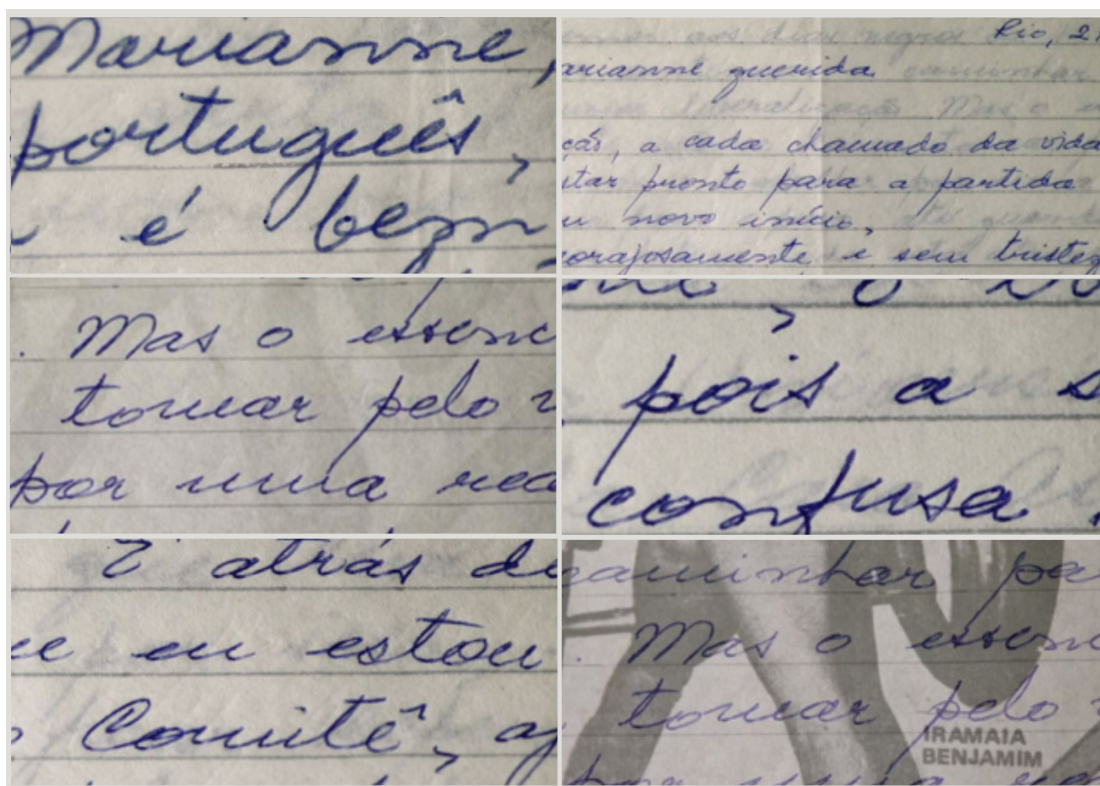 Marianne,
português,
é bem
Rio, 21
arianne querida
ção, a cada chamado da vida
tar pronto para a partida
u novo início,
orajosamente e sem tristez
. Mas o essenc
tomar pelo
por uma rea
pois a s
confusa
É atrás de
ue eu estou
Comitê,
caminhar pa
. Mas o essenc
tomar pelo
IRAMAIA
BENJAMIM
por uma rea